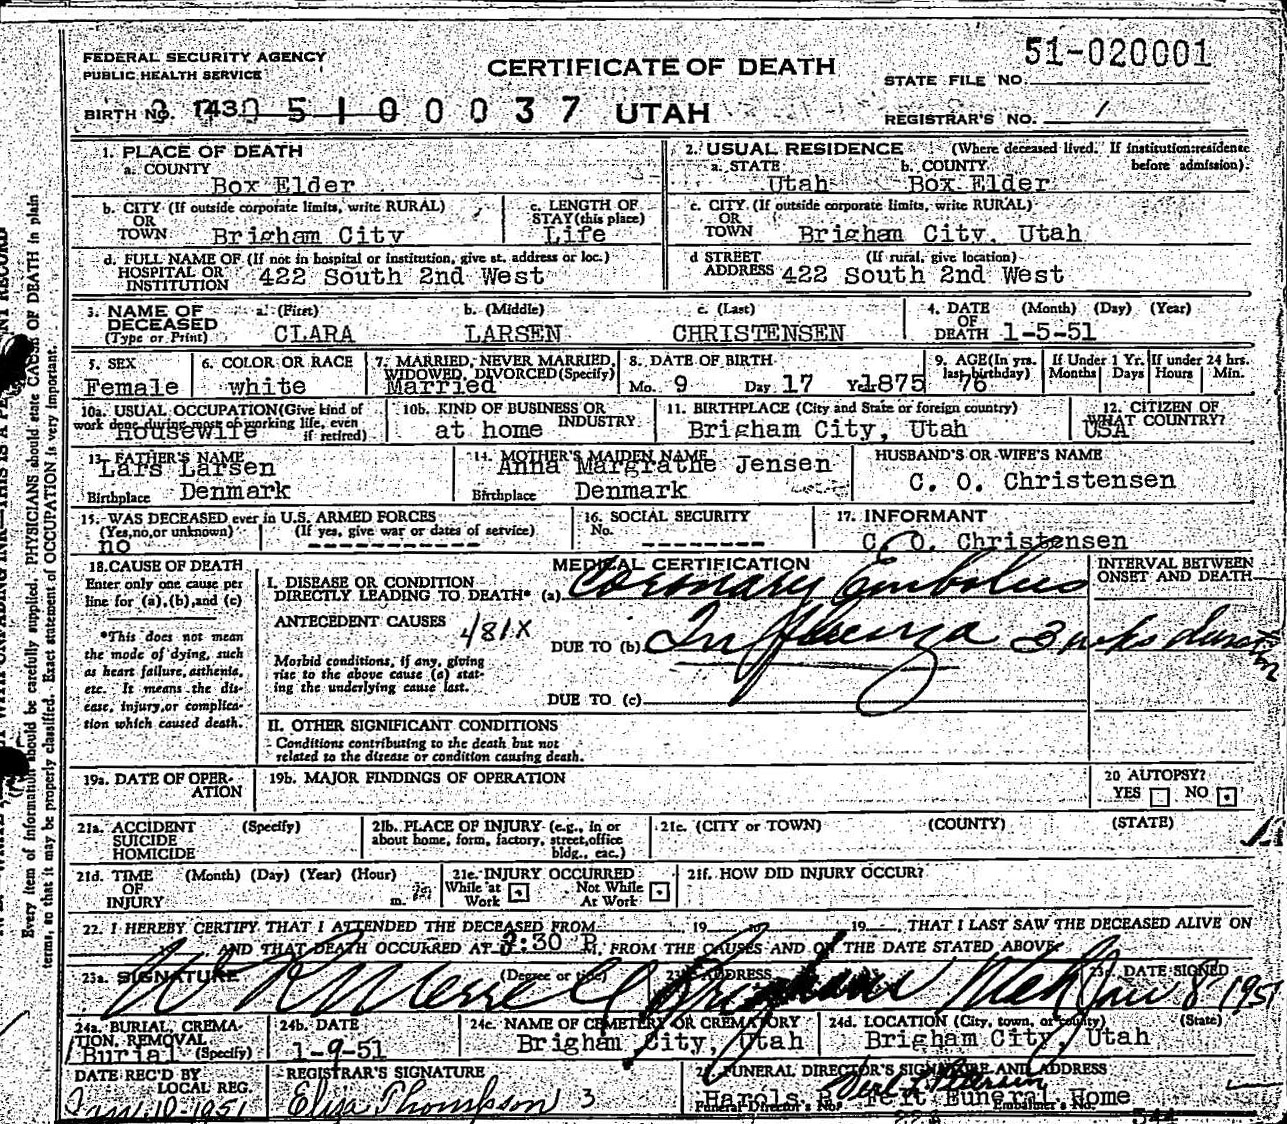 FEDERAL SECURITY AGENCY
PUBLIC HEALTH SERVICE
CERTIFICATE OF DEATH
51-020001
STATE FILE NO.
BIRTH NO. 0 5 1 0 0 0 3 7 UTAH
REGISTRAR'S NO. 1
1. PLACE OF DEATH
a. COUNTY
Box Elder
2. USUAL RESIDENCE (Where deceased lived. If institution: residence before admission).
a. STATE b. COUNTY
Utah Box Elder
b. CITY (If outside corporate limits, write RURAL)
OR
TOWN Brigham City
c. LENGTH OF
STAY (this place)
Life
c. CITY (If outside corporate limits, write RURAL)
OR
TOWN Brigham City, Utah
d. FULL NAME OF (If not in hospital or institution, give st. address or loc.)
HOSPITAL OR
INSTITUTION 422 South 2nd West
d STREET (If rural, give location)
ADDRESS 422 South 2nd West
3. NAME OF DECEASED (Type or Print)
a. (First) b. (Middle) c. (Last)
CLARA LARSEN CHRISTENSEN
4. DATE OF DEATH (Month) (Day) (Year)
1-5-51
5. SEX
Female
6. COLOR OR RACE
white
7. MARRIED, NEVER MARRIED,
WIDOWED, DIVORCED (Specify)
Married
8. DATE OF BIRTH
Mo. 9 Day 17 Yr. 1875
9. AGE (In yrs. last birthday)
76
If Under 1 Yr. Months Days
If under 24 hrs. Hours Min.
10a. USUAL OCCUPATION (Give kind of
work done during most of working life, even
if retired)
Housewife
10b. KIND OF BUSINESS OR INDUSTRY
at home
11. BIRTHPLACE (City and State or foreign country)
Brigham City, Utah
12. CITIZEN OF WHAT COUNTRY?
USA
13. FATHER'S NAME
Lars Larsen
Birthplace Denmark
14. MOTHER'S MAIDEN NAME
Anna Margrathe Jensen
Birthplace Denmark
HUSBAND'S OR WIFE'S NAME
C. O. Christensen
15. WAS DECEASED ever in U.S. ARMED FORCES
(Yes, no, or unknown) (If yes, give war or dates of service)
no
16. SOCIAL SECURITY
No.
17. INFORMANT
C. O. Christensen
18. CAUSE OF DEATH
Enter only one cause per
line for (a), (b), and (c)
*This does not mean
the mode of dying, such
as heart failure, asthenia,
etc. It means the dis-
ease, injury, or complica-
tion which caused death.
MEDICAL CERTIFICATION
INTERVAL BETWEEN
ONSET AND DEATH
I. DISEASE OR CONDITION
DIRECTLY LEADING TO DEATH* (a) Coronary Embolus
ANTECEDENT CAUSES 481X
DUE TO (b) Influenza 3 wks duration
Morbid conditions, if any, giving
rise to the above cause (a) stat-
ing the underlying cause last.
DUE TO (c)
II. OTHER SIGNIFICANT CONDITIONS
Conditions contributing to the death but not
related to the disease or condition causing death.
19a. DATE OF OPER-
ATION
19b. MAJOR FINDINGS OF OPERATION
20 AUTOPSY?
YES NO
21a. ACCIDENT (Specify)
SUICIDE
HOMICIDE
21b. PLACE OF INJURY (e.g., in or
about home, form, factory, street, office
bldg., eac.)
21c. (CITY or TOWN) (COUNTY) (STATE)
21d. TIME (Month) (Day) (Year) (Hour)
OF
INJURY m.
21e. INJURY OCCURRED
While at Work Not While At Work
21f. HOW DID INJURY OCCUR?
22. I HEREBY CERTIFY THAT I ATTENDED THE DECEASED FROM , 19 to 19 , THAT I LAST SAW THE DECEASED ALIVE ON
AND THAT DEATH OCCURRED AT :30 P. FROM THE CAUSES AND ON THE DATE STATED ABOVE
23a. SIGNATURE (Degree or title)
W R Merrell
23b. ADDRESS
Brigham Utah
23c. DATE SIGNED
Jan 8 1951
24a. BURIAL, CREMA-
TION, REMOVAL
Burial (Specify)
24b. DATE
1-9-51
24c. NAME OF CEMETERY OR CREMATORY
Brigham City, Utah
24d. LOCATION (City, town, or county) (State)
Brigham City, Utah
DATE REC'D BY
LOCAL REG.
Jan. 10-1951
REGISTRAR'S SIGNATURE
Eliza Thompson 3
25 FUNERAL DIRECTOR'S SIGNATURE AND ADDRESS
Harols B. Felt Funeral Home
Funeral Director's No. Embalmer's No. 544
Every item of information should be carefully supplied. PHYSICIANS should state CAUSE OF DEATH in plain
terms, so that it may be properly classified. Exact statement of OCCUPATION is very important.